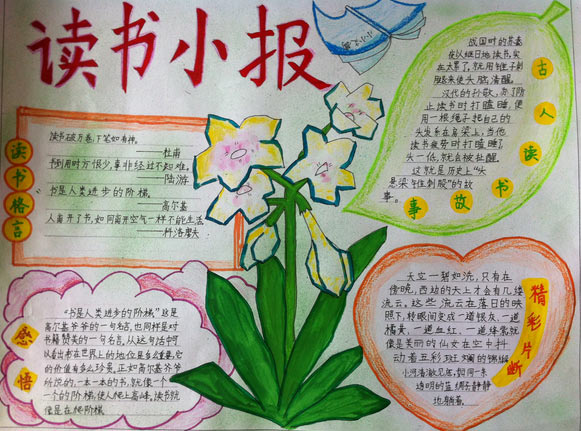 读书小报
读书格言
读书破万卷,下笔如有神。
——杜甫
书到用时方恨少,事非经过不知难。
——陆游
书是人类进步的阶梯。
——高尔基
人离开了书,如同离开空气一样不能生活
——科洛廖夫
古人读书故事
战国时的苏秦
夜以继日地读书,实
在太累了,就用锥子刺
腿来使头脑清醒。
汉代的孙敬,为了防
止读书时打瞌睡,便
用一根绳子把自己的
头发系在房梁上,当他
读书疲劳时打瞌睡了
头一低,就会被扯醒。
这就是历史上"头
悬梁锥刺股"的故
事。
感悟
"书是人类进步的阶梯"这是
高尔基爷爷的一句名言,也同样是对
书籍赞美的一句名言,从这句话中可
以看出书在世界上的地位是多么重要,它
的价值有多么珍贵,正如高尔基爷爷
所说的,一本一本的书,就像一个
一个的阶梯,使人爬上高峰,读书就
像是在爬阶梯
精彩片断
天空一碧如洗,只有在
傍晚,西边的天上才会有几缕
流云,这些流云在落日的映
照下,转眼间变成一道银灰、一道
橘黄、一道血红、一道绛紫,就
像是美丽的仙女在空中抖
动着五彩斑斓的锦缎
小河清澈见底,如同一条
透明的蓝绸子静静
地躺着